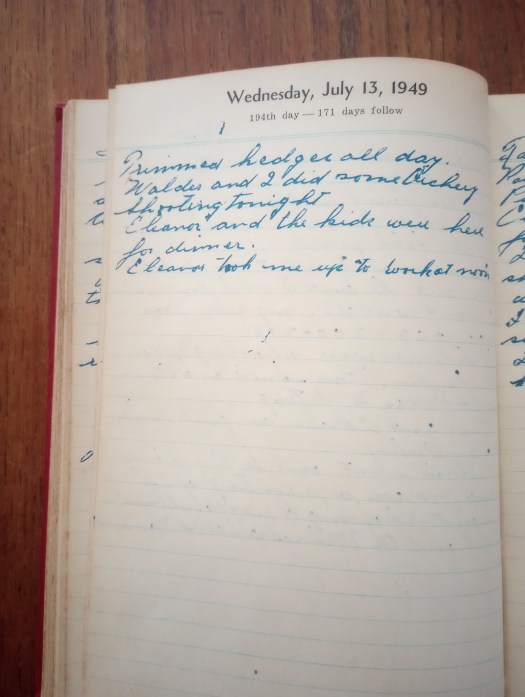 Wednesday, July 13, 1949
194th day — 171 days follow
Trimmed hedges all day.
Waldes and I did some Archery
shooting tonight
Eleanor and the kids were here
for dinner.
Eleanor took me up to work at noon